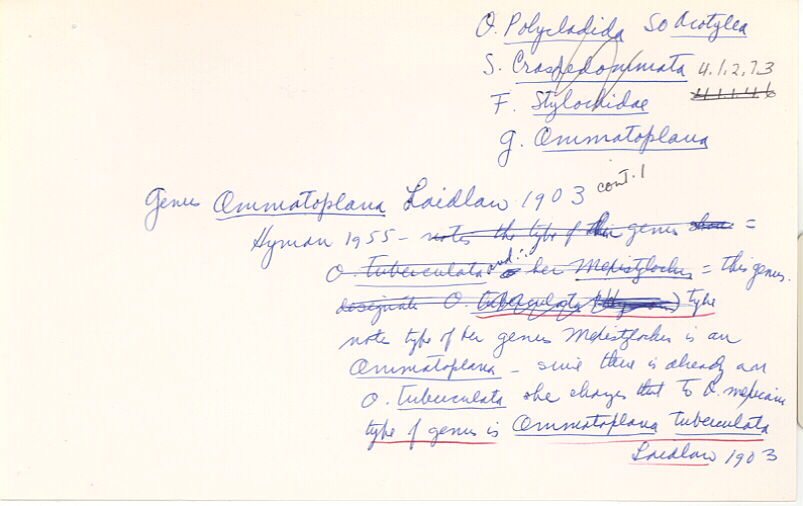 O. Polycladida SO Acotylea
S. Craspedommata 4.1.2.7.3
F. Stylochidae 4.1.1.4.6
g. Ommatoplana
Genus Ommatoplana Laidlaw 1903 cont. 1
Hyman 1955 - notes the type of her genus =
O. tuberculata and ∴ her Mexistylochus = this genus.
designate O. tuberculata (Hyman) type
note type of her genus Mexistylochus is an
Ommatoplana - since there is already an
O. tuberculata she changes that to O. mexicana
type of genus is Ommatoplana tuberculata
Laidlaw 1903